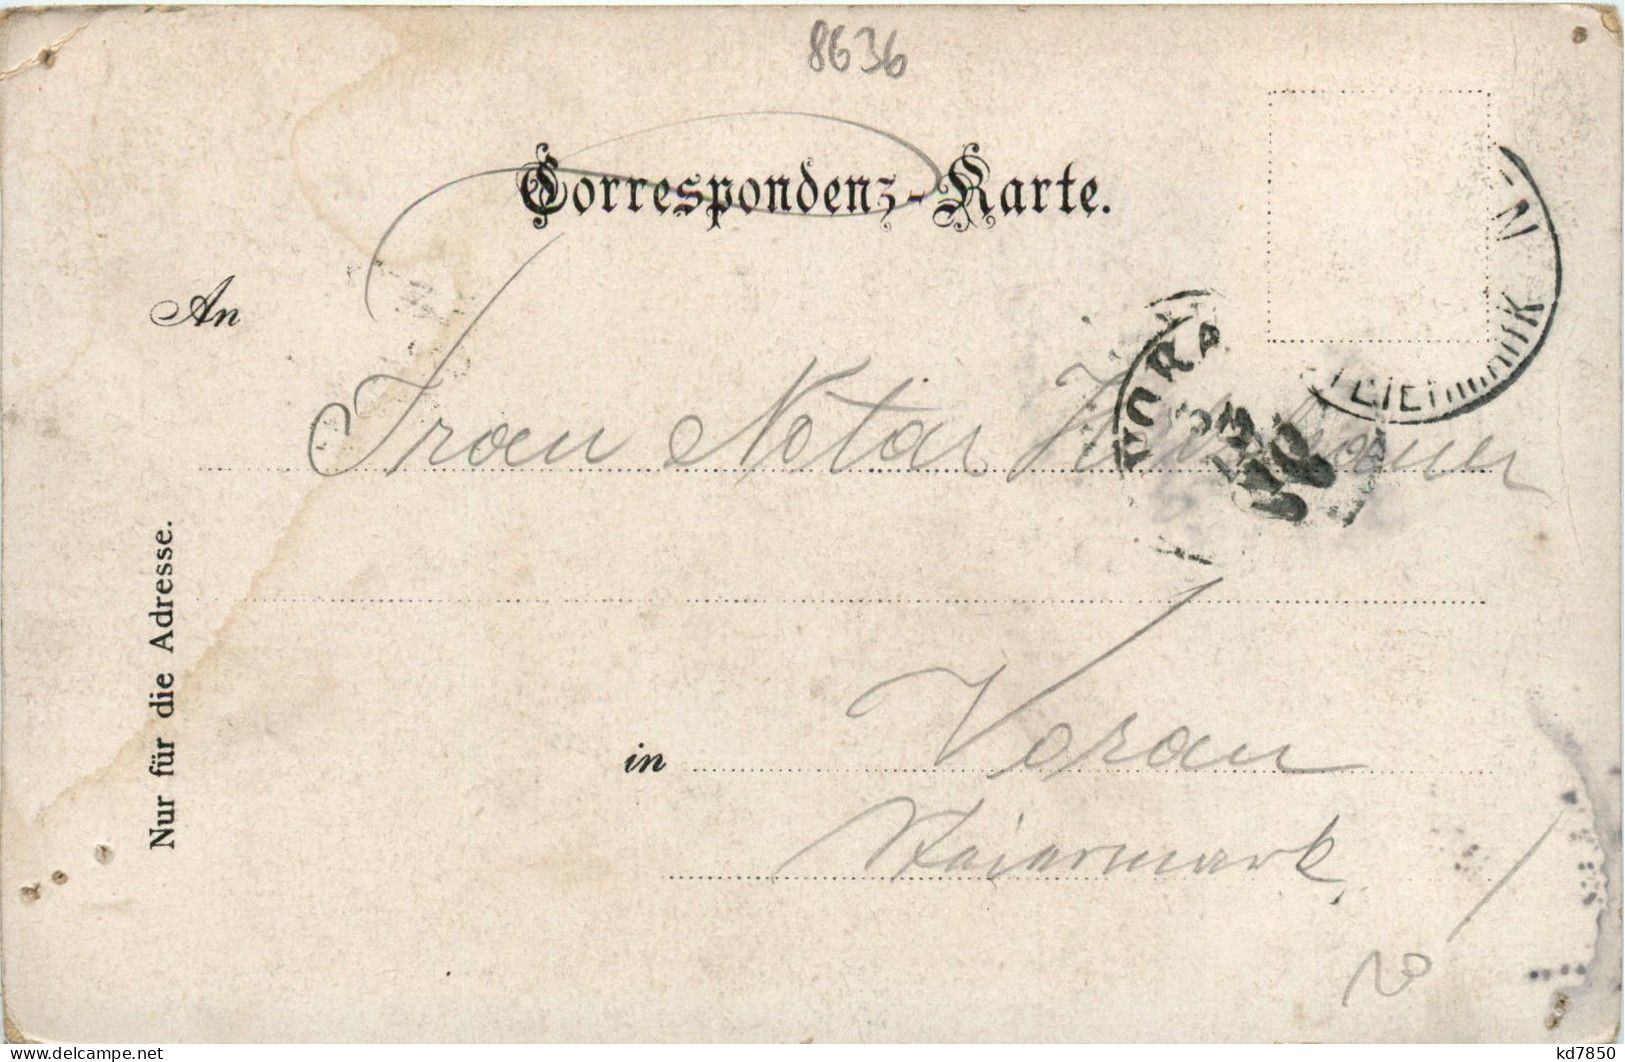 8636
Correspondenz-Karte.
An
Frau Notar
Nur für die Adresse.
in Vorau
Steiermark
VORA
STEIERMARK
kd7850
delcampe.net